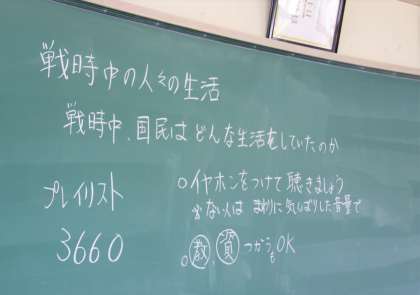 戦時中の人々の生活
戦時中、国民はどんな生活をしていたのか
プレイリスト
3660
○イヤホンをつけて聴きましょう
※ない人は まわりに気くばりした音量で
○教、資つかうもOK